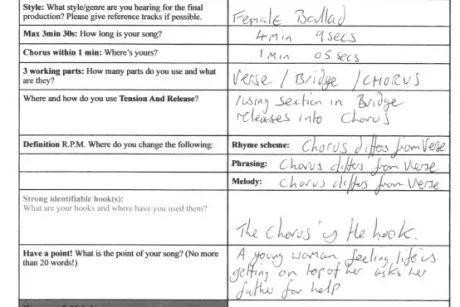 Style: What style/genre are you hearing for the final
production? Please give reference tracks if possible.
Female Ballad
Max 3min 30s: How long is your song?
4min 9secs
Chorus within 1 min: Where's yours?
1 Min 05 secs
3 working parts: How many parts do you use and what
are they?
Verse / Bridge / CHORUS
Where and how do you use Tension And Release?
section in Bridge
releases into Chorus
Definition R.P.M. Where do you change the following:
Rhyme scheme: Chorus differs from Verse
Phrasing: Chorus differs from Verse
Melody: Chorus differs from Verse
Strong identifiable hook(s):
What are your hooks and where have you used them?
The Chorus is the hook.
Have a point! What is the point of your song? (No more
than 20 words!)
A young woman, feeling life is
getting on top of her asks her
father for help